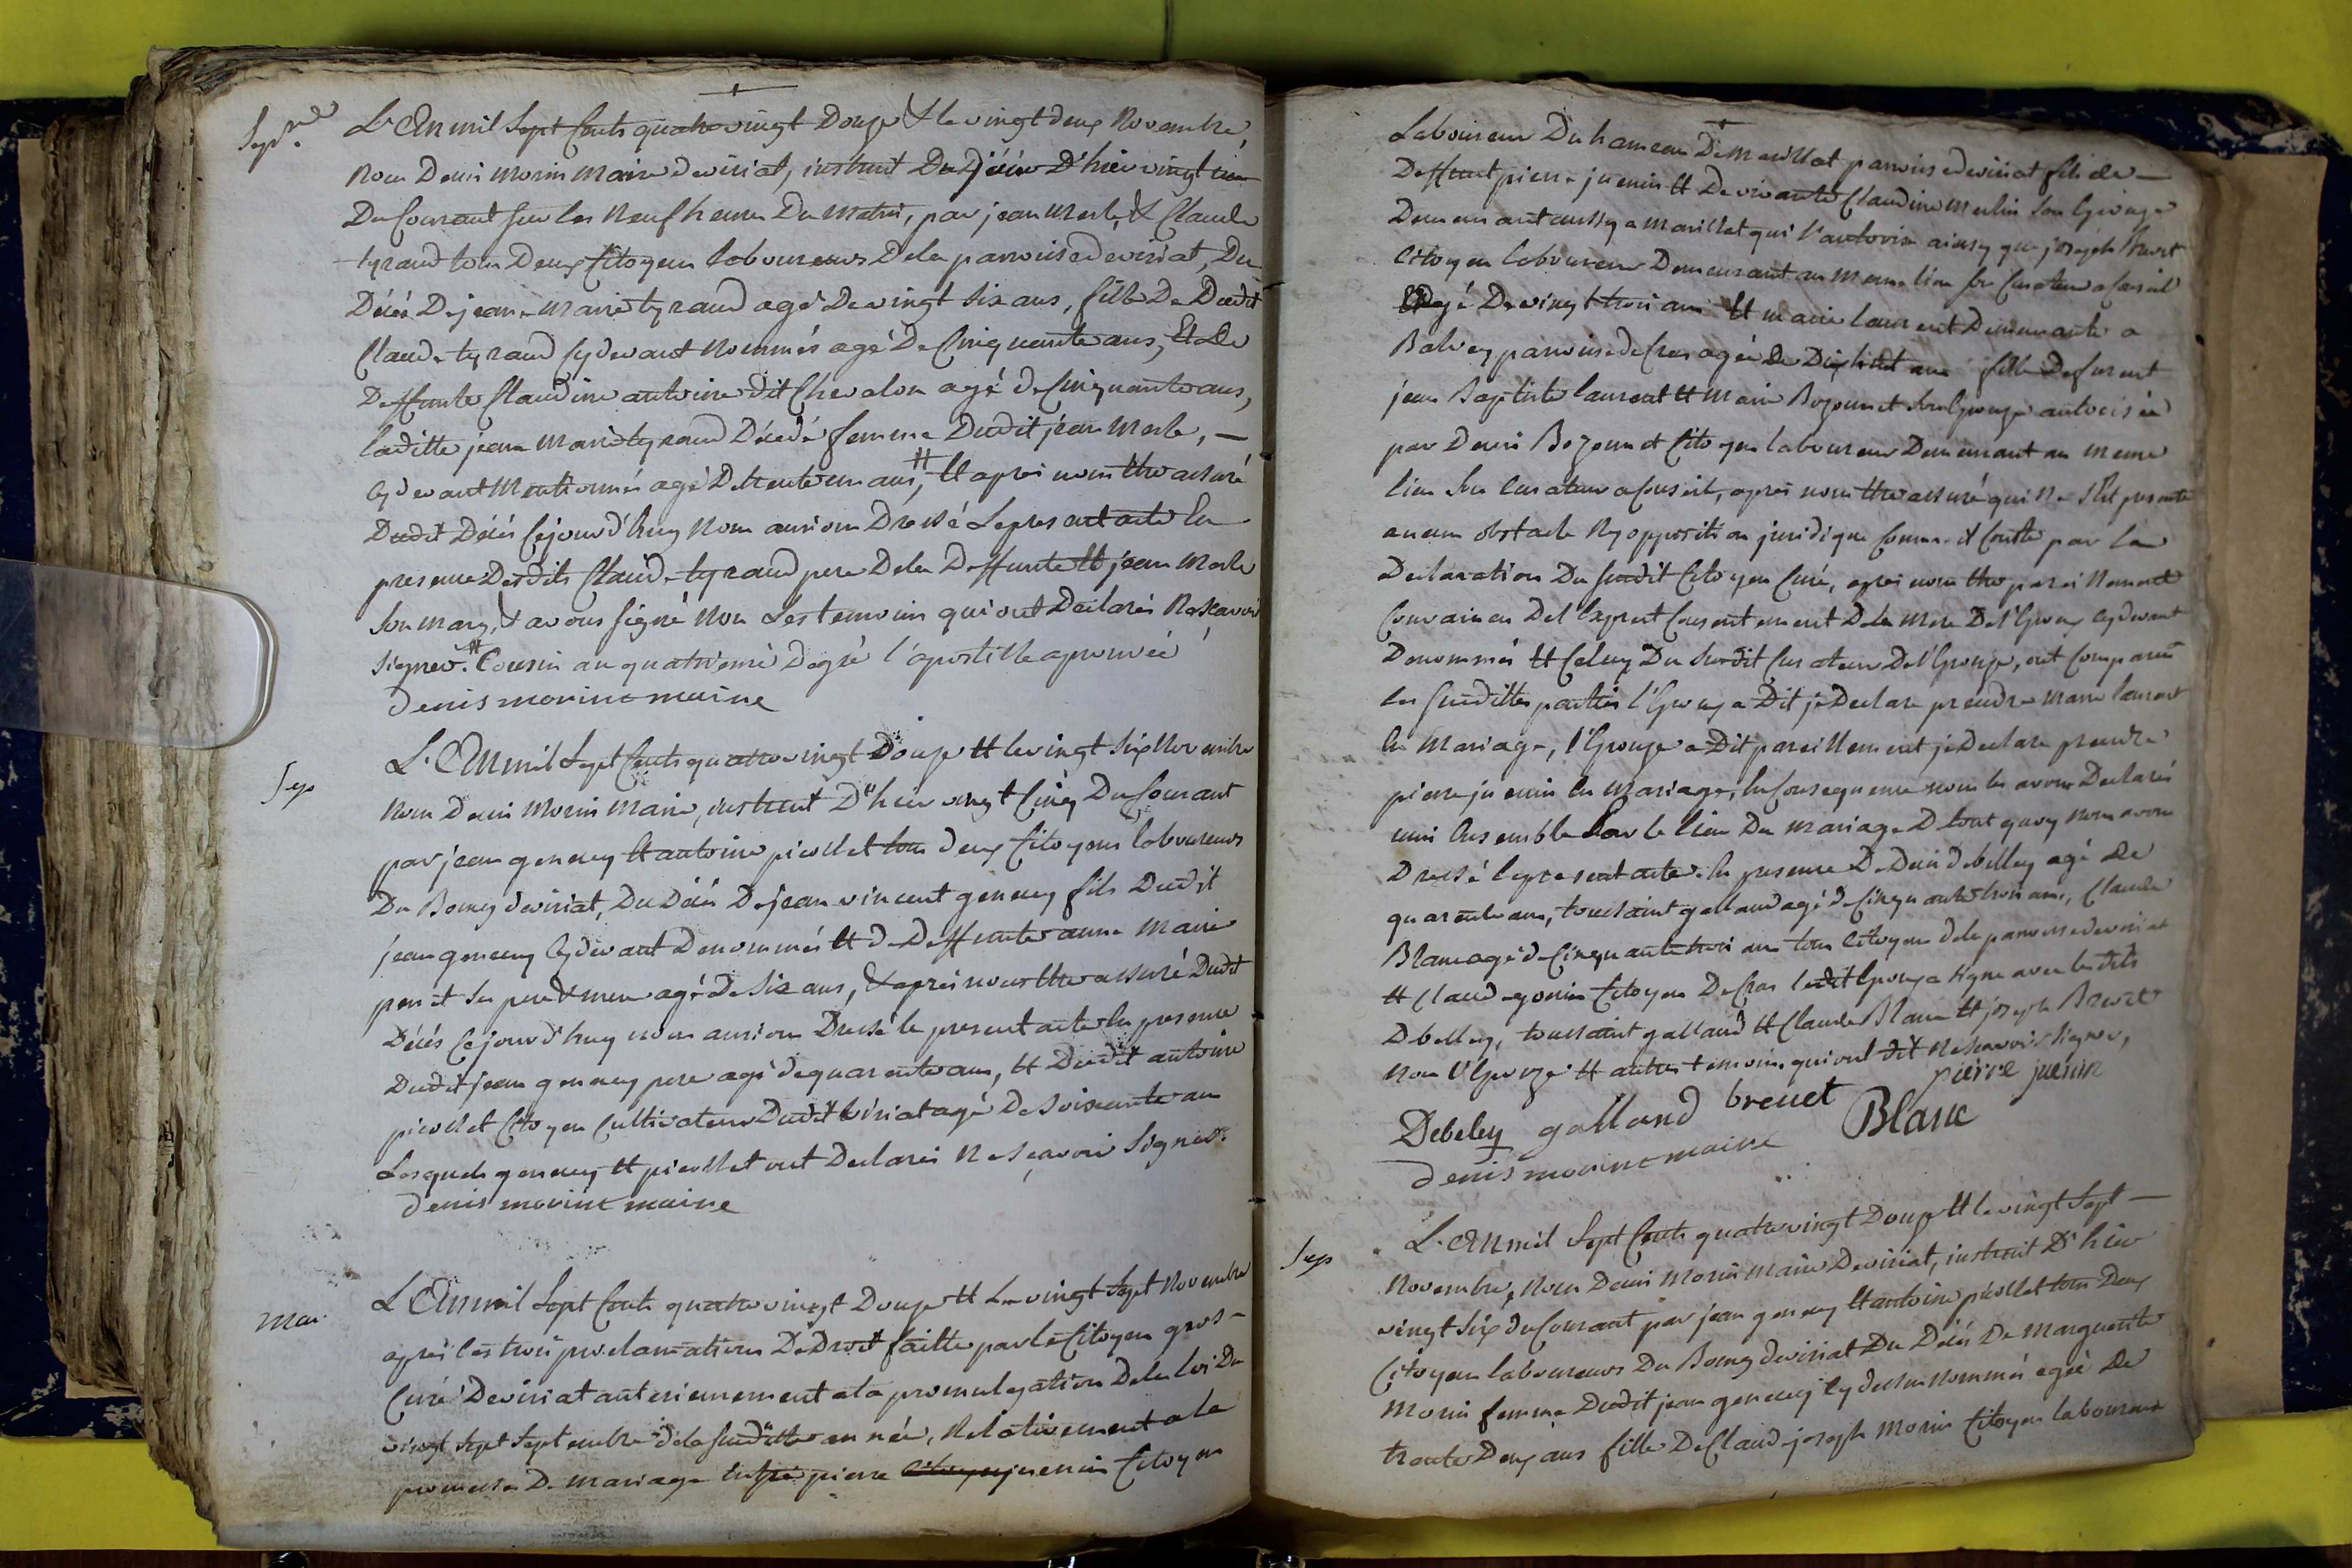 Sep.re
L'An mil Sept Cents quatre vingt Douze & le vingt deux Novembre
Nous Denis Morin Maire de viriat, instruit Du Décés D'hier vingt un
Du Courant sur les Neuf heures Du Matin, par jean Merle & Claude
tyrand tous Deux Citoyens laboureurs De la paroisse de viriat, Du
Décés De jeane Marie tyrand agé De vingt six ans, fille De Dudit
Claude tyrand cy devant Nommés agé De Cinquante ans, Et De
Deffunte Claudine antoine dit Chevalon agé de Cinquante ans,
laditte jeane Marie tyrand Décedé femme Dudit jean Merle, —
cy devant Mentionnés agé De trente un ans, # Et aprés nous être assuré
Dudit Décés Cejourd'huy Nous aurions Dressé Le present acte En
presence Desdits Claude tyrand pere De la Deffunte Et jean Merle
son mary, & avons signé Non Les temoins qui ont Declarés Ne Scavoir
signer. # Cousin au quatrieme Degré l'apostille aprouvée
denis morin maire
Sep
L'An mil Sept Cents quatre vingt Douze Et le vingt Six Novembre
Nous Denis Morin Maire, instruit D'hier vingt Cinq Du Courant
par jean genevey Et antoine picollet tous deux Citoyens laboureurs
Du Bourg de viriat, Du Décés De jean vincent genevey fils Dudit
jean genevey Cy devant Denommés Et de Deffunte anne Marie
ses pere & mere agé de Six ans, & aprés nous être assuré Dudit
Décés Cejourd'huy nous aurions Dressé le present acte En presence
Dudit jean genevey pere agé de quarente ans, Et Dudit antoine
picollet Citoyen Cultivateur Dudit viriat agé De Soixante ans
Lesquels genevey Et picollet ont Declarés Ne Sçavoir Signer.
denis morin maire
Mar.
L'An mil Sept Cents quatre vingt Douze Et Le vingt Sept Novembre
aprés les trois proclamations De Droit faitte par le Citoyen gros —
Curé De viriat anterieurement a la promulgation De la loi Du
vingt Sept Septembre de la susditte année, Relativement a la
promesse De mariage Entre pierre juenin Citoyen
Laboureur Du hameau De Marillat paroisse de viriat fils de —
Deffunt pierre juenin Et De vivante Claudine Merlin son Epouse
Demeurant aussy a Marillat qui l'autorise ainsy que joseph Brevet
Citoyen laboureur Demeurant au meme lieu son Curateur a Conseil
agé De vingt trois ans Et marie laurent Demeurante a
paroisse de Cras agée De Dix huit ans fille De furent
jean Baptiste laurent Et Marie Bozonnet son Epouze autorisée
par Denis Bozonnet Citoyen laboureur Demeurant au meme
lieu son Curateur a Conseil, aprés nous être assuré qui Ne s'Est presenté
aucun obstacle Ny opposition juridique Comme il Conste par la
Declaration Du susdit Citoyen Curé, aprés nous être pareillement
Convaincu De l'Exprest Consentement De la Mere De l'Epoux cy devant
Denommés Et Celuy Du susdit Curateur De l'Epouze, ont Comparu
les susdittes parties l'Epoux a Dit je Declare prendre Marie laurent
En Mariage, l'Epouze a Dit pareillement je Declare prendre
pierre juenin En Mariage, En Consequence nous les avons Declarés
unis Ensemble par le lien Du Mariage De tout quoy nous avons
Dressé le present acte. En presence De Denis debelley agé De
quarente ans, toussaint galland agé de Cinquante trois ans, Claude
Blanc agé de Cinquante trois ans tous Citoyens de la paroisse de viriat
Et Claude gonin Citoyen De Cras ledit Epoux a signé avec lesdits
Debelley, toussaint galland Et Claude Blanc Et joseph Brevet
Non l'Epouze Et autres temoins qui ont dit Ne Scavoir Signer,
pierre juenin
Debeley galland brevet Blanc
denis morin maire
Sep
L'An mil Sept Cents quatre vingt Douze Et le vingt Sept —
Novembre, Nous Denis Morin Maire De viriat, instruit D'hier
vingt Six du Courant par jean genevey Et antoine picollet tous Deux
Citoyens laboureurs Du Bourg de viriat Du Décés De Marguerite
Morin femme Dudit jean genevey cy dessus Nommés agée De
trente Deux ans fille De Claude joseph Morin Citoyen laboureur